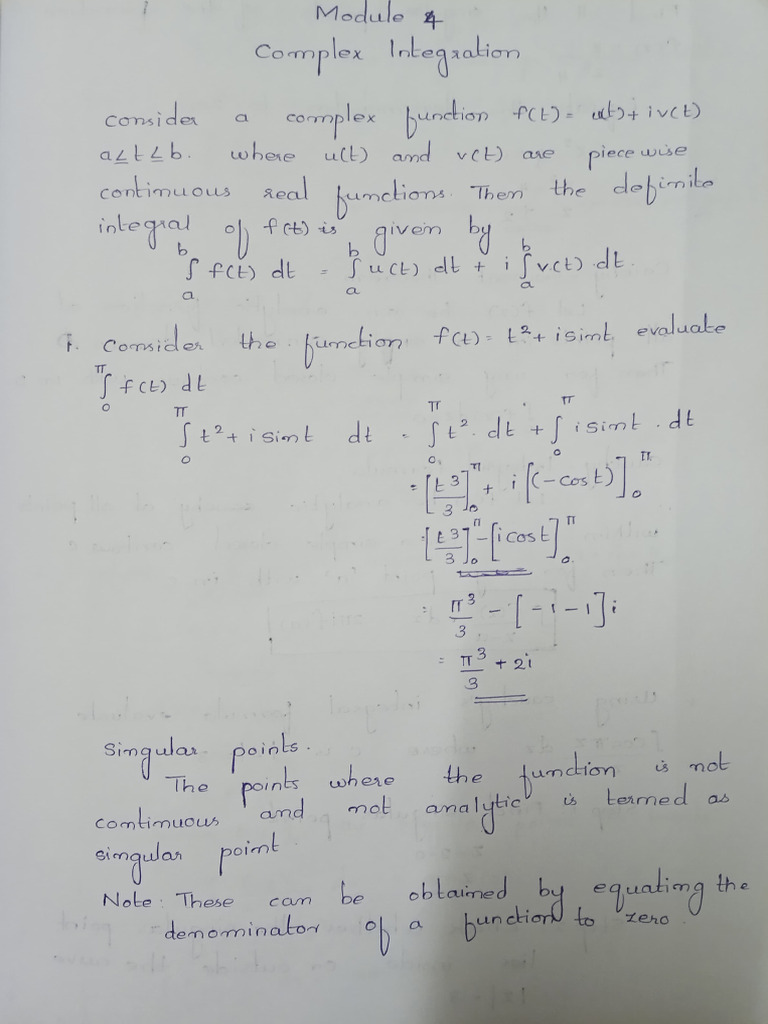 Module 4
Complex Integration
Consider a complex function f(t) = u(t) + iv(t)
a≤t≤b. where u(t) and v(t) are piece wise
continuous real functions. Then the definite
integral of f(t) is given by
∫ₐᵇ f(t) dt = ∫ₐᵇ u(t) dt + i ∫ₐᵇ v(t) dt.
1. Consider the function f(t) = t² + i sint evaluate
∫₀^π f(t) dt
∫₀^π t² + i sint dt = ∫₀^π t² dt + ∫₀^π i sint . dt
= [t³/3]₀^π + i [(-cost)]₀^π
[t³/3]₀^π - [i cost]₀^π
= π³/3 - [-1-1]i
= π³/3 + 2i
Singular points.
The points where the function is not
continuous and not analytic is termed as
singular point.
Note: These can be obtained by equating the
denominator of a function to zero.